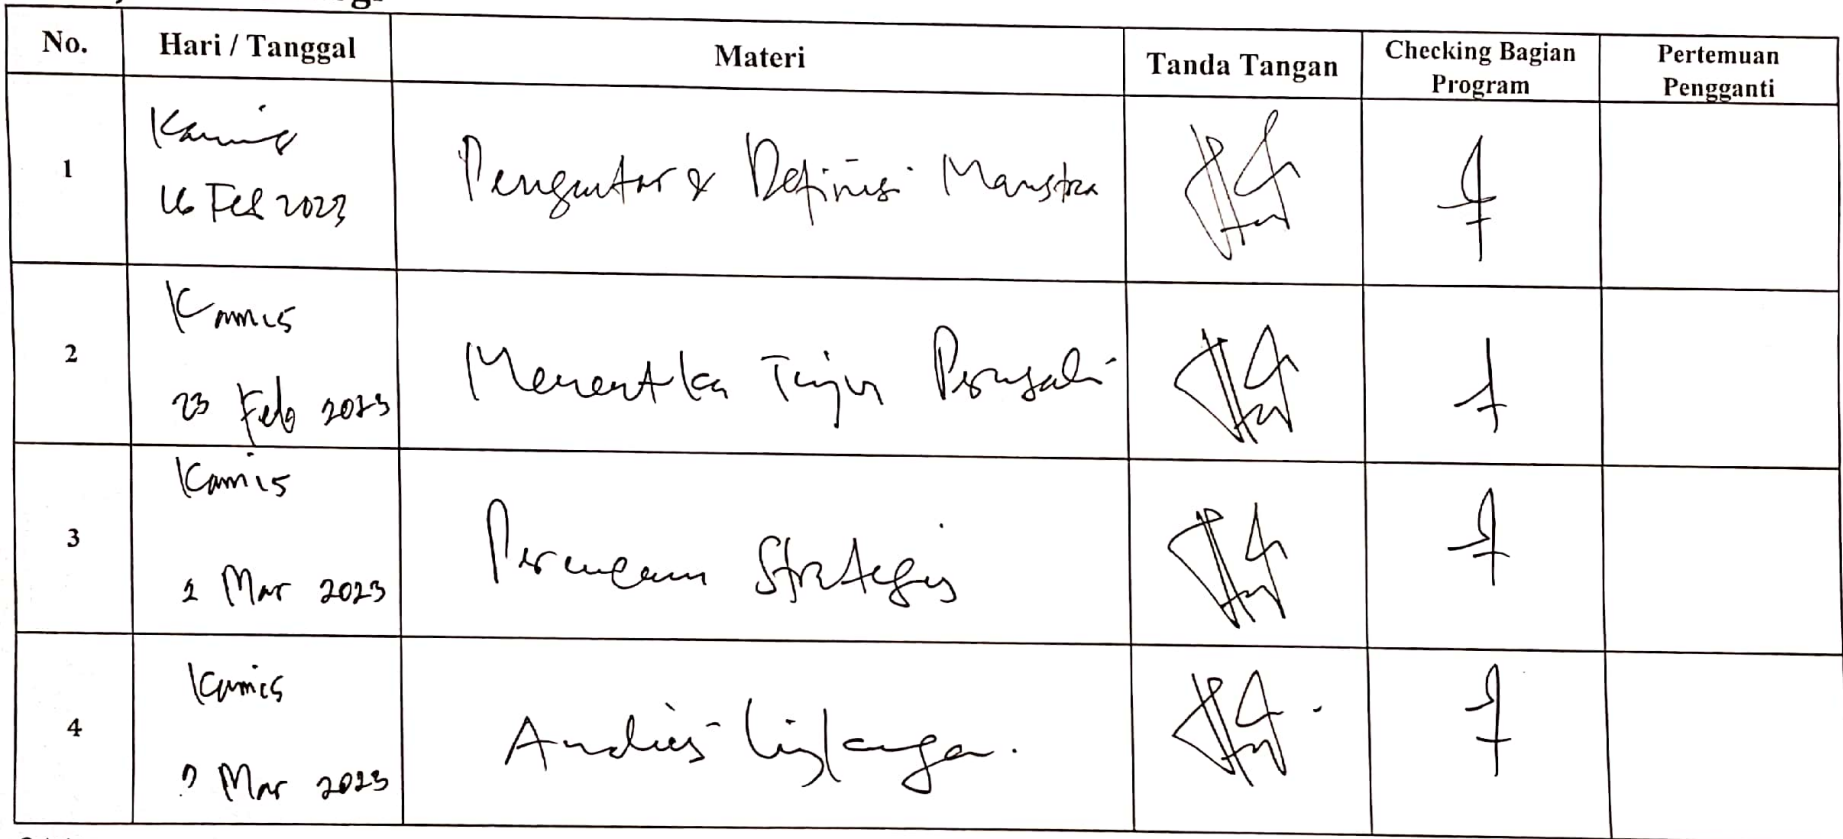 No. Hari / Tanggal Materi Tanda Tangan Checking Bagian Program Pertemuan Pengganti
1 Kamis 16 Feb 2023 Pengantar & Definisi Manstra
2 Kamis 23 Feb 2023 Menentka Tujun Perusah
3 Kamis 2 Mar 2023 Perencaan Strategis
4 Kamis 9 Mar 2023 Analisis Lingkungan.